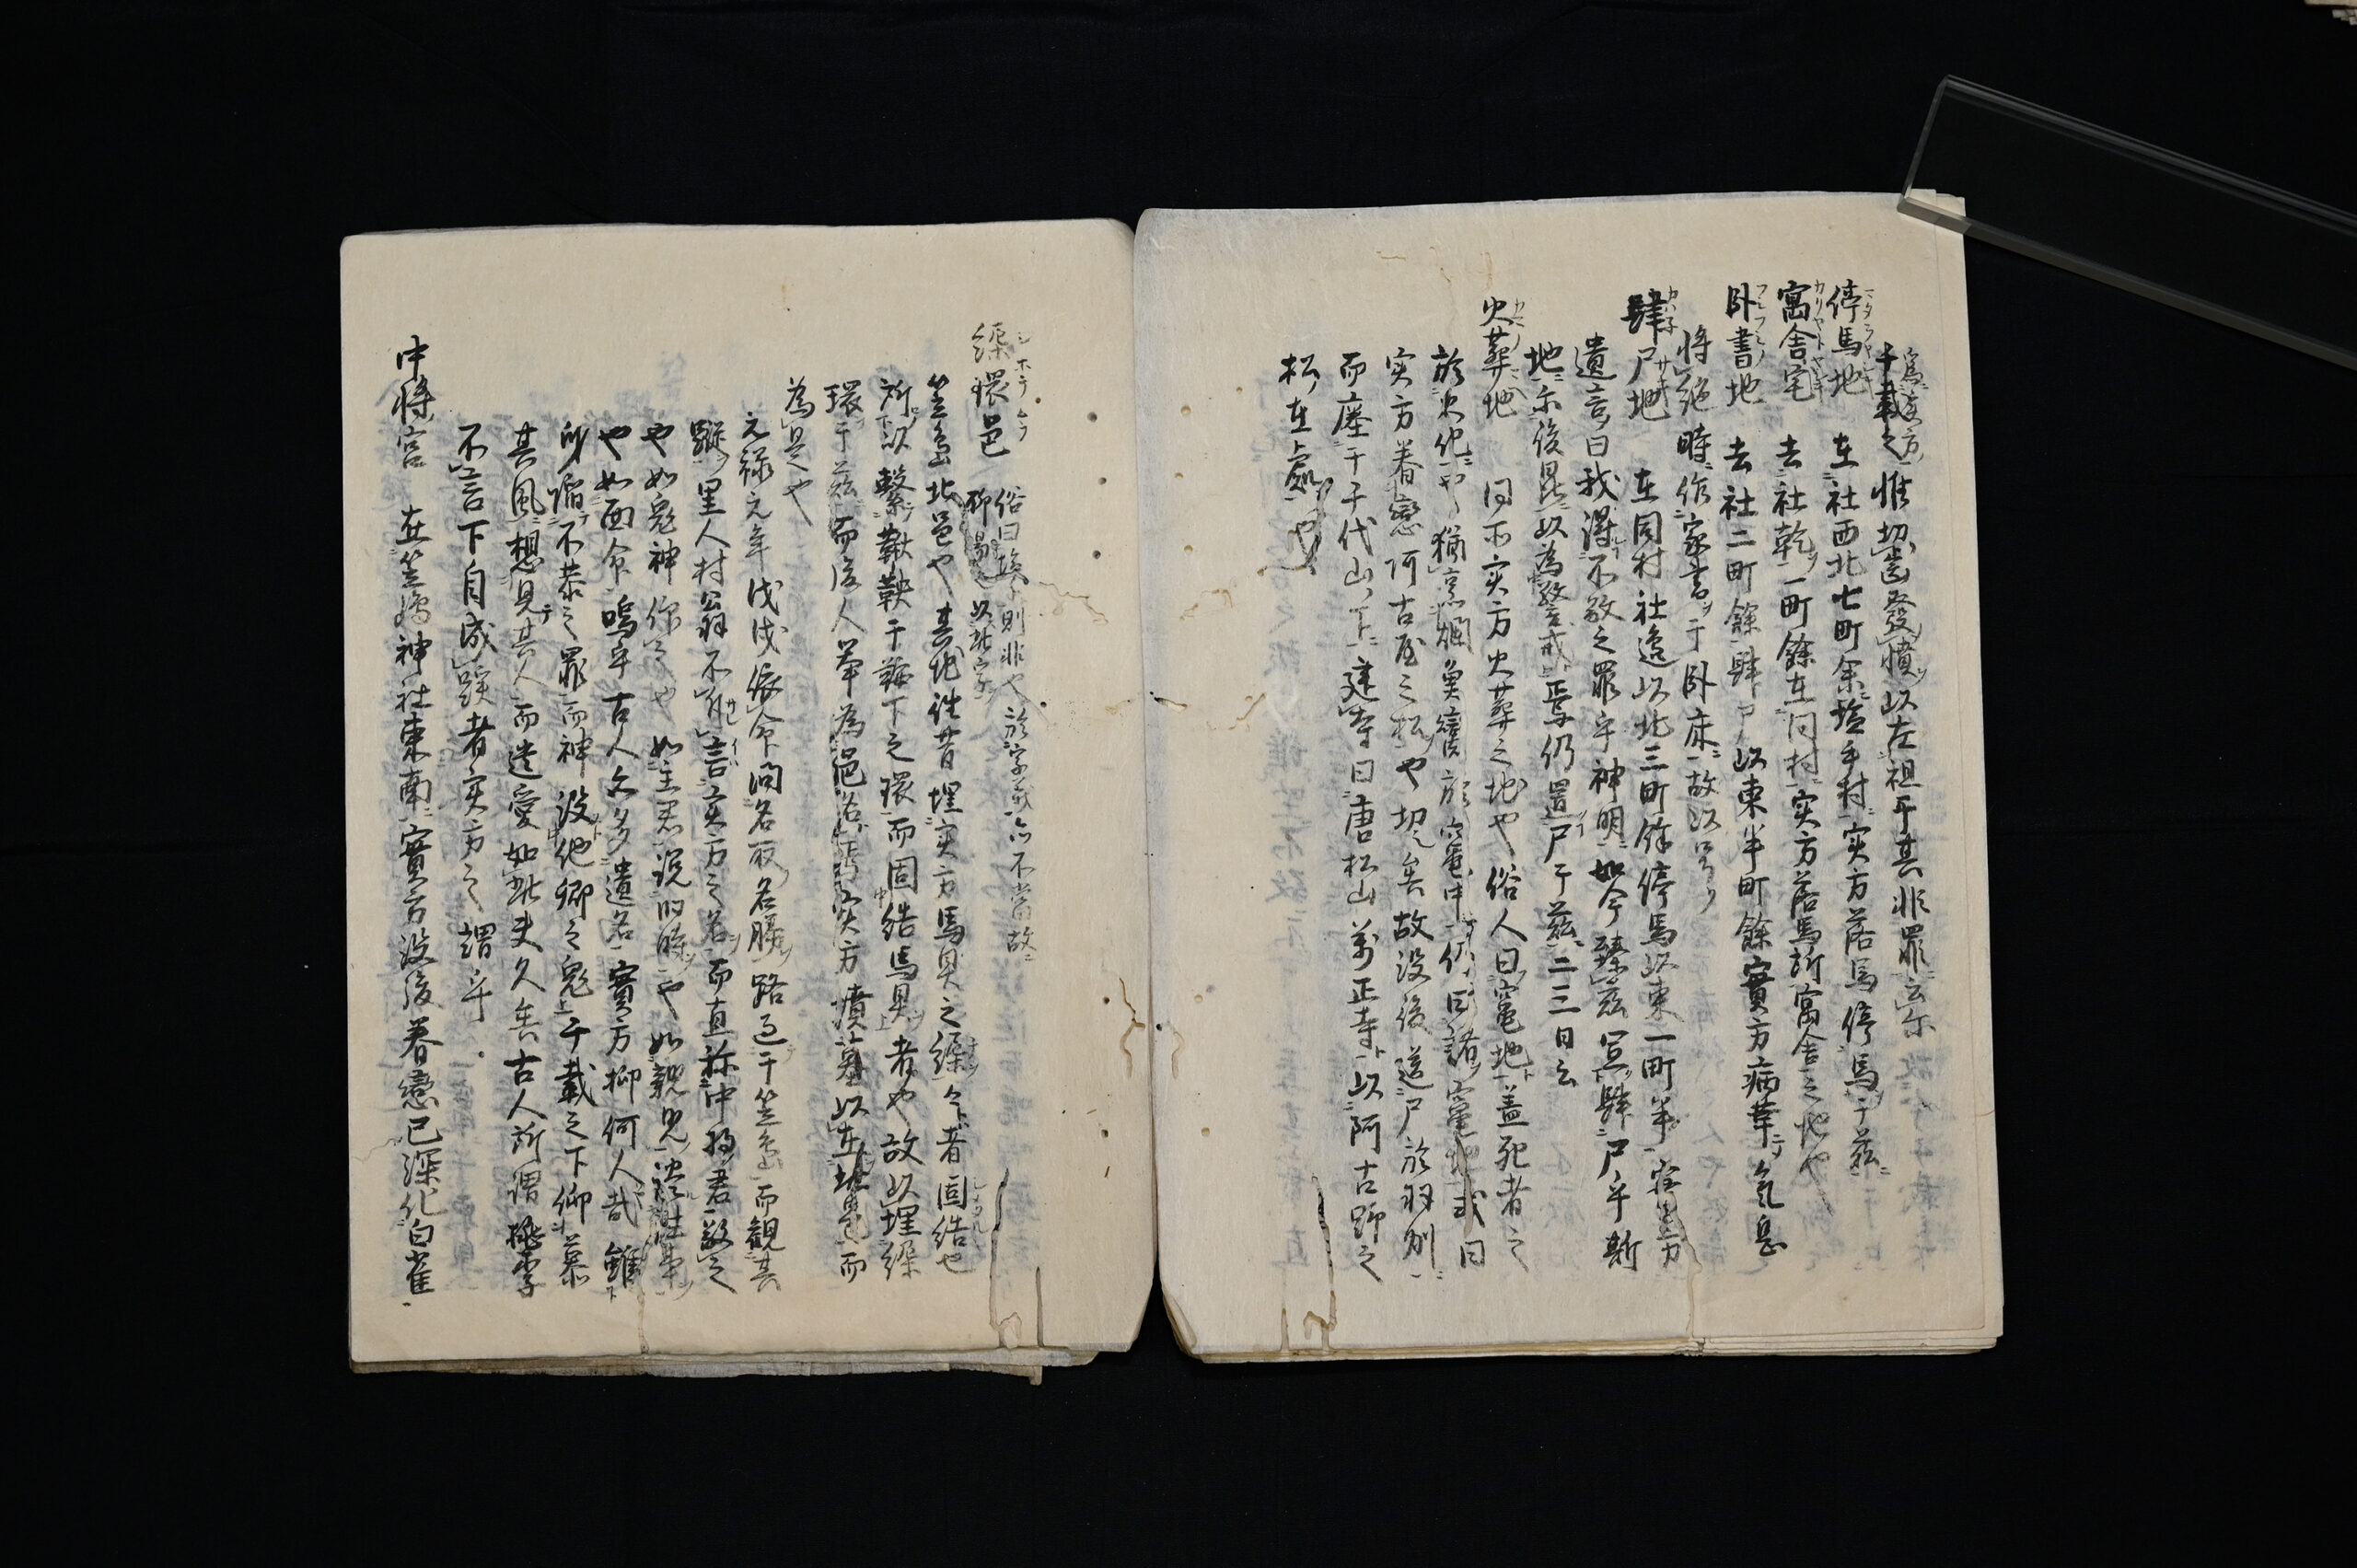 千載之惟切歯發憤以左袒乎其非罪云尓
停馬地 在社西北七町余塩手村実方落馬停馬于茲
寓舎宅 去社乾一町餘在同村実方落馬所寓舎之地也
臥書地 去社二町餘肆尸以東半町餘實方病革気息
将絶時作家書于臥床故以号
肆尸地 在同村社邉以北三町餘停馬以東一町半実方
遺言曰我得不敬之罪乎神明如今臻茲冝肆尸乎斯
地尓後昆以為警戒焉仍置尸于茲二三日云
火葬地 同所実方火葬之地也俗人曰竃地盖死者之
於火化也猶烹爛魚於竃中仍曰諸竃地或曰
実方眷戀阿古屋之松也切矣故没後送尸於羽州
而塵于千代山下建寺曰唐松山萬正寺以阿古野之
松在處也
繰環邑 俗曰 則非也於字義亦不當故
柳 以 此字
笠島北邑也其地往昔埋実方馬具之繰今者固結也
所以繋鞦鞅于鞍下之環而固結馬具者也故以埋繰
環于茲而後人举為邑名焉実方墳墓以在 邑而
為是也
元禄元年戊戌依命問名取名勝路過于笠島而観其
蹤里人村翁不能言実方之名而直称中将君敬之
也如鬼神 之也如主君説的時也如親見
也如面命嗚乎古人亦多遺名實方抑何人哉雖
所謂不恭之罪而神没他郷之鬼千載之下仰慕
其風想見其人而遺愛如此夫久矣古人所謂桃李
不言下自成蹊者実方之謂乎
中将宮 在笠嶋神社東南實方没後眷戀已深化白雀